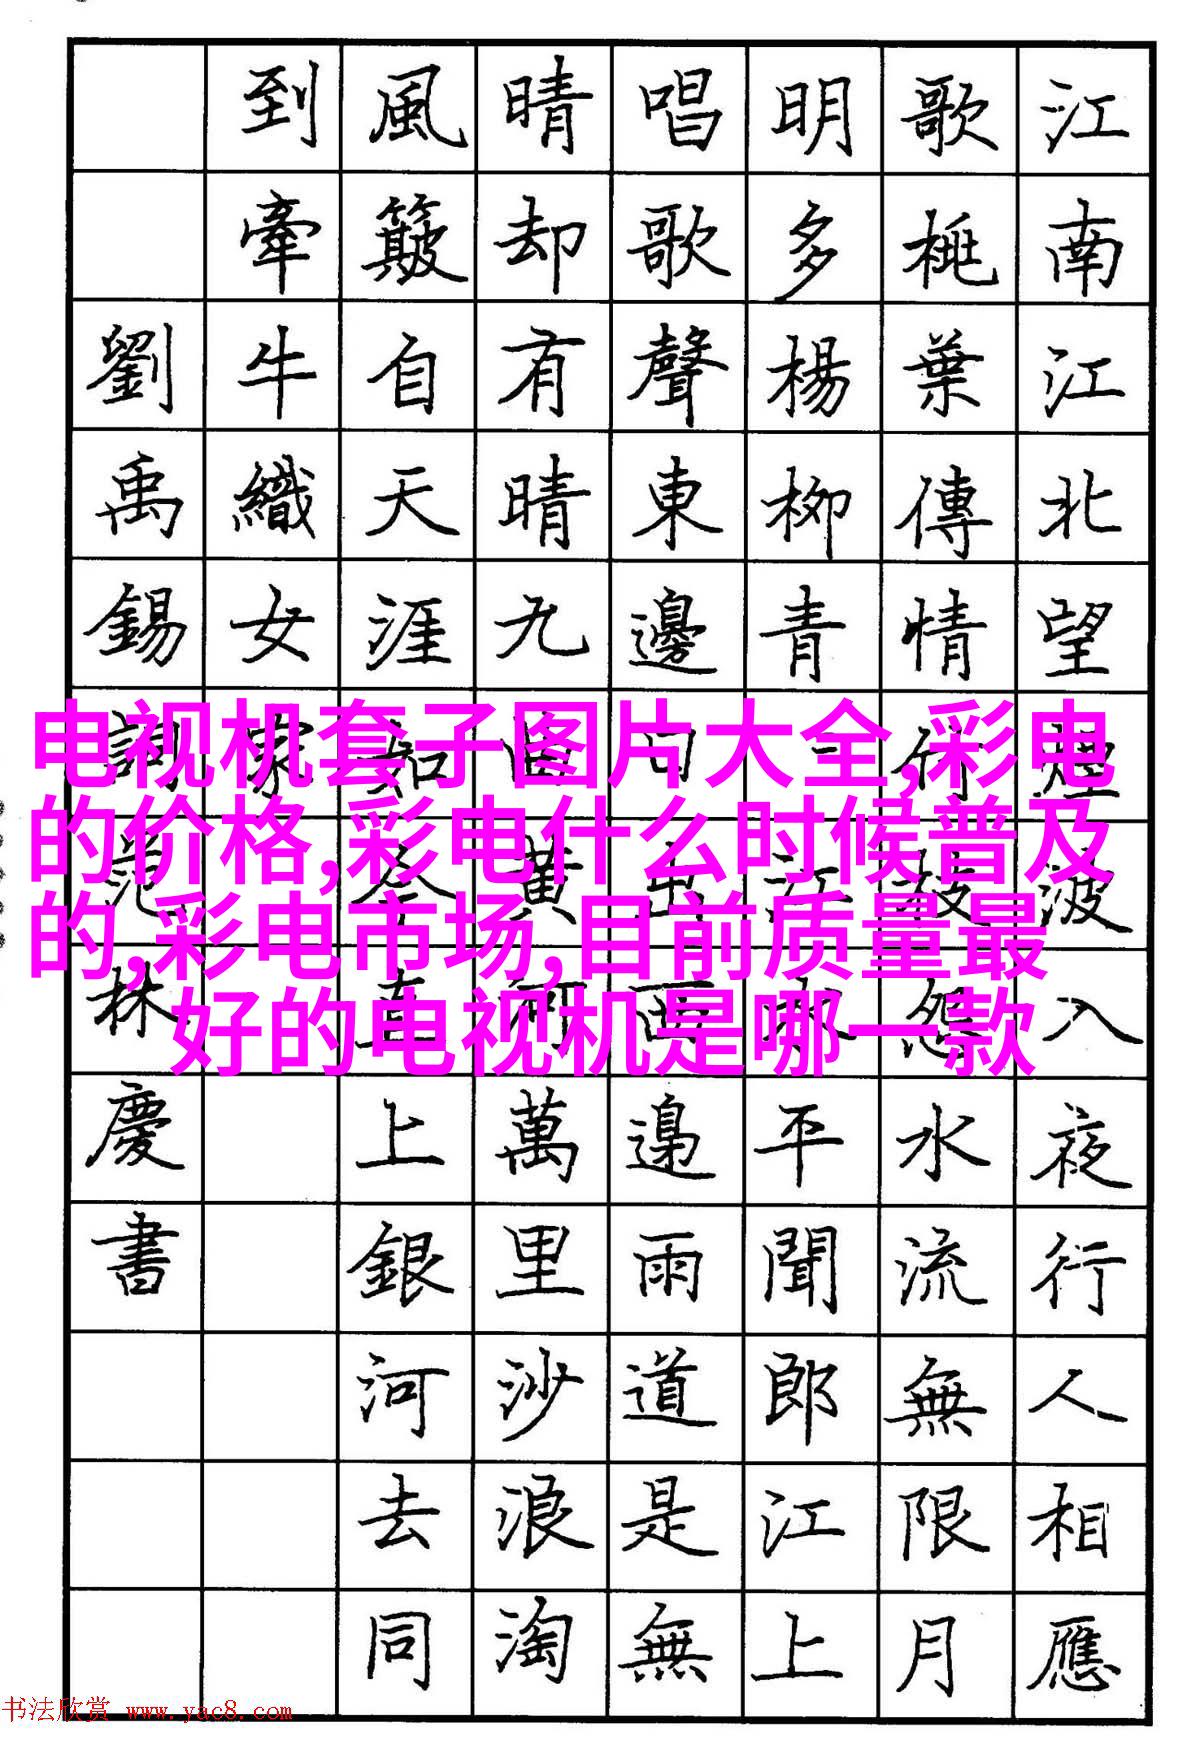 江南江北望煙波入夜行人相應
歌桃葉傳情竹枝怨水流無限月
明多楊柳青江水平聞郎江上
唱歌聲東邊日出西邊雨道是無
晴却有晴九曲黃河萬里沙浪淘
風簸自天涯如今直上銀河去同
到牽牛織女家
劉禹錫詞林慶書
电视机套子图片大全,彩电
的价格,彩电什么时候普及
的,彩电市场,目前质量最
好的电视机是哪一款
书法欣赏 www.yac8.com